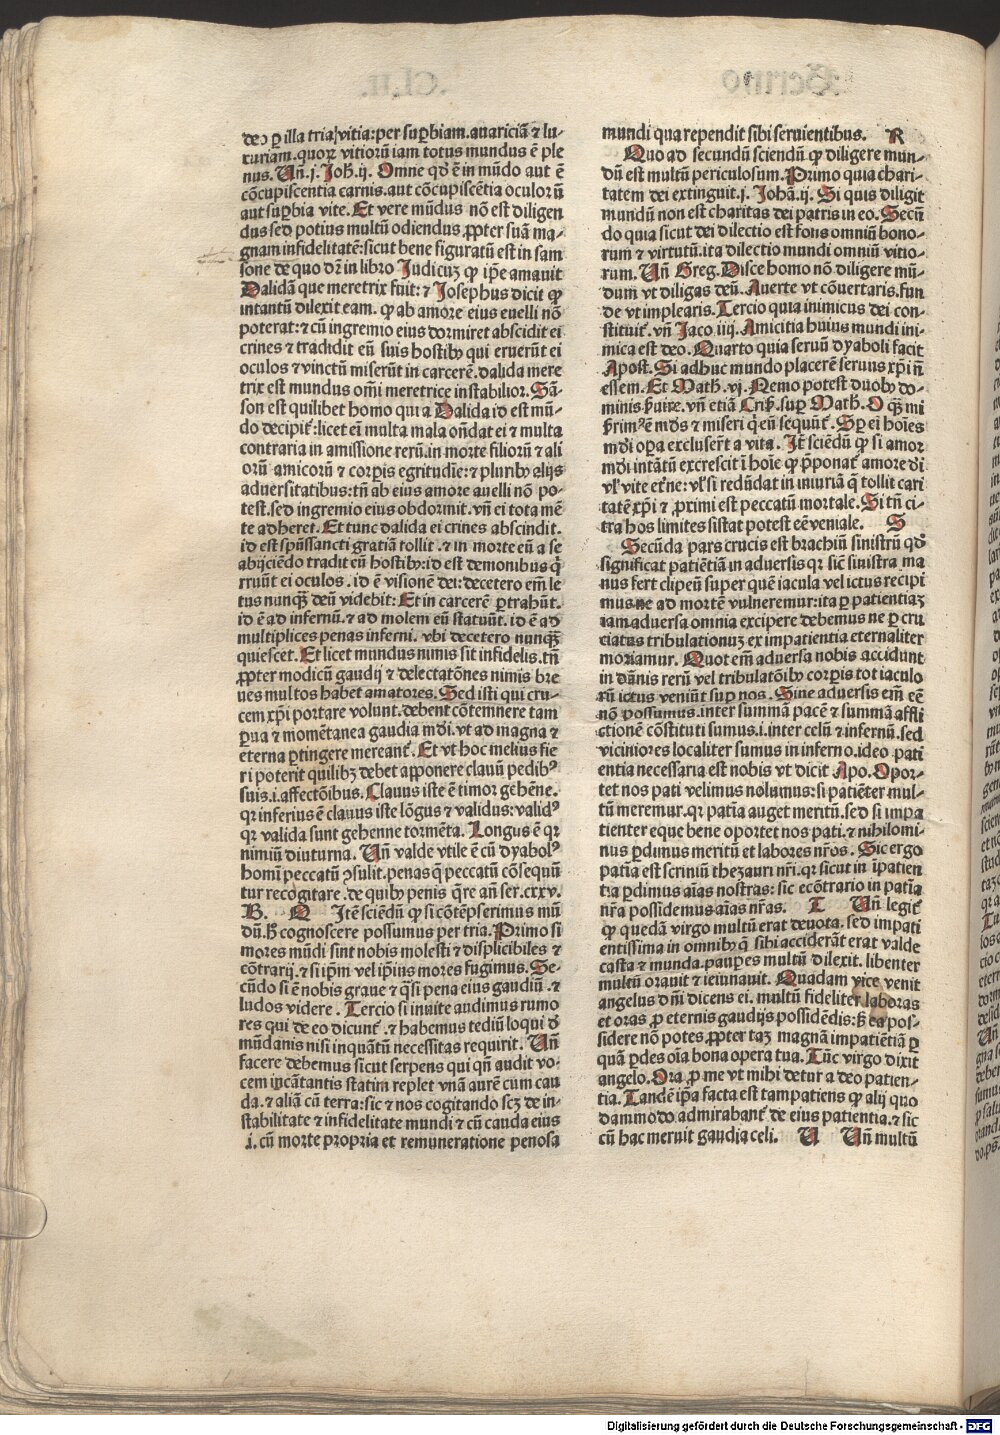 deo ꝑ illa tria vitia: per suꝑbiam. auariciā ⁊ lu-
xuriam. quoꝝ vitiorū iam totus mundus ē ple
nus. Uñ. j. Joh̄. ij. Omne qd̓ ē in mūdo aut ē
cōcupiscentia carnis. aut cōcupiscētia oculor ū
aut suꝑbia vite. Et vere mūdus nō est diligen
dus sed potius multū odiendus ꝓpter suā ma-
gnam infidelitatē: sicut bene figuratū est in sam
sone de quo dr̄ in libro Judicuꝫ ꝙ ip̄e amauit
Dalidā que meretrix fuit: ⁊ Josephus dicit ꝙ
intantū dilexit eam. ꝙ ab amore eius euelli nō
poterat: ⁊ cū ingremio eius dormiret abscidit ei
crines ⁊ tradidit eū suis hostibꝫ qui eruerūt ei
oculos ⁊ vinctū miserūt in carcerē. dalida mere
trix est mundus om̄i meretrice instabilior. Sā-
son est quilibet homo qui a Dalida id est mū-
do decipit̄: licet em̄ multa mala oñdat ei ⁊ multa
contraria in amissione rerū. in morte filiorū ⁊ ali
orū amicorū ⁊ corꝑis egritudīe: ⁊ pluribꝫ alijs
aduersitatibus: tñ ab eius amore auelli nō po-
test. sed ingremio eius obdormit. vñ ei tota mē
te adheret. Et tunc dalida ei crines abscindit.
id est sp̄ūssancti gratiā tollit. ⁊ in morte eū a se
abijciēdo tradit eū hostibꝫ: id est demonibus q̄
rruūt ei oculos. id ē visionē dei: decetero em̄ le
tus nunqꝫ deū videbit: Et in carcerē ꝑtrahūt.
id ē ad infernū. ⁊ ad molem eū statuūt. id ē ad
multiplices penas inferni. vbi decetero nunqꝫ
quiescet. Et licet mundus nimis sit infidelis. tñ
ꝓpter modicū gaudij ⁊ delectatōnes nimis bre
ues multos habet amatores. Sed isti qui cru-
cem xp̄i portare volunt. debent cōtemnere tam
ꝑua ⁊ momētanea gaudia mdi. vt ad magna ⁊
eterna ꝑtingere mereant̄. Et vt hoc melius fie
ri poterit quilibꝫ debet apponere clauū pedibꝰ
suis. i. affectōibus. Clauus iste ē timor gehēne.
qr inferius ē clauus iste lōgus ⁊ validus: validꝰ
qr valida sunt gehenne tormēta. Longus ē qr
nimiū diuturna. Uñ valde vtile ē cū dyabolꝰ
homī peccatū ꝯsulit. penas q̄ peccatū cōsequū
tur recogitare. de quibꝫ penis q̄re añ ser. cxxv.
B. Q Itē sciēdū ꝙ si cōtēpserimus mū
dū. h̄ cognoscere possumus per tria. Primo si
mores mūdi sint nobis molesti ⁊ displicibiles ⁊
cōtrarij. ⁊ si ip̄m vel ip̄ius mores fugimus. Se-
cūdo si ē nobis graue ⁊ q̄si pena eius gaudiū. ⁊
ludos videre. Tercio si inuite audimus rumo
res qui de eo dicunt̄. ⁊ habemus tediū loqui d̄
mūdanis nisi inquātū necessitas requirit. Uñ
facere debemus sicut serpens qui qñ audit vo-
cem incātantis statim replet vnā aurē cum cau
da. ⁊ aliā cū terra: sic ⁊ nos cogitando scꝫ de in-
stabilitate ⁊ infidelitate mundi ⁊ cū cauda eius
.i. cū morte propria et remuneratione penosa
mundi qua rependit sibi seruientibus. R
Quo ad secundū sciendū ꝙ diligere mun-
dū est multū periculosum. Primo quia chari-
tatem dei extinguit. j. Johā. ij. Si quis diligit
mundū non est charitas dei patris in eo. Secū
do quia sicut dei dilectio est fons omniū bono-
rum ⁊ virtutū. ita dilectio mundi omniū vitio-
rum. Uñ Greg. Disce homo nō diligere mū-
dum vt diligas deū. Auerte vt cōuertaris. fun
de vt implearis. Tercio quia inimicus dei con-
stituit̄. vñ Jaco iiij. Amicitia huius mundi ini-
mica est deo. Quarto quia seruū dyaboli facit
Apost. Si adhuc mundo placerē seruus xp̄i ñ
essem. Et Math̄. vj. Nemo potest duobꝫ do-
minis ẜuire. vñ etiā Criß. suꝑ Math̄. O qꝫ mi
ẜrimꝰ ē mdꝰs ⁊ miseri q̄ eū sequunt̄. Sꝑ ei hoīes
mdi oꝑa exclusert̄ a vita. It̄ sciēdū ꝙ si amor
mdi intātū excrescit ī hoīe ꝙ p̄ponat̄ amore di
vl' vite et̓ne: vl' si redūdat in iniuriā q̄ tollit cari
tatē xp̄i ⁊ ꝓximi est peccatū mortale. Si tñ ci-
tra hos limites sistat potest eē veniale. S
Secūda pars crucis est brachiū sinistrū qd̓
significat patiētiā in aduersis qr sic̄ sinistra ma
nus fert clipeū super quē iacula vel ictus recipi
mus ne ad mortē vulneremur: ita ꝑ patientiaꝫ
iam aduersa omnia excipere debemus ne ꝑ cru
ciatus tribulationuꝫ ex impatientia eternaliter
moriamur. Quot em̄ aduersa nobis accidunt
in dānis rerū vel tribulatōibꝫ corꝑis tot iaculo
rū ictus veniūt suꝑ nos. Sine aduersis em̄ eē
nō possumus. inter summā pacē ⁊ summā affli
ctionē cōstituti sumus. i. inter celū ⁊ infernū. sed
viciniores localiter sumus in inferno. ideo pati
entia necessaria est nobis vt dicit Apo. Opor-
tet nos pati velimus nolumus: si patiēter mul-
tū meremur. qr patīa auget meritū. sed si impa
tienter eque bene oportet nos pati. ⁊ nihilomi-
nus ꝑdimus meritū et labores nr̄os. Sic ergo
patīa est scriniū thezauri nr̄i. qr sicut in īpatien
tia ꝑdimus aīas nostras: sic ecōtrario in patīa
nr̄a possidemus aīas nr̄as. T Uñ legit̄
ꝙ quedā virgo multū erat deuota. sed impati
entissima in omnibꝫ q̄ sibi acciderāt erat valde
casta ⁊ munda. pauꝑes multū dilexit. libenter
multū orauit ⁊ ieiunauit. Quadam vice venit
angelus dn̄i dicens ei. multū fideliter laboras
et oras ꝓ eternis gaudijs possidēdis: ẜ ea pos-
sidere nō potes ꝓpter taꝫ magnā impatiētiā ꝑ
quā ꝑdes oīa bona opera tua. Tūc virgo dixit
angelo. Ora ꝓ me vt mihi detur a deo patien-
tia. Tandē ip̄a facta est tam patiens ꝙ alij quo
dammodo admirabant̄ de eius patientia. ⁊ sic
cū hac meruit gaudia celi. U Uñ multū
Digitalisierung gefördert durch die Deutsche Forschungsgemeinschaft - DFG